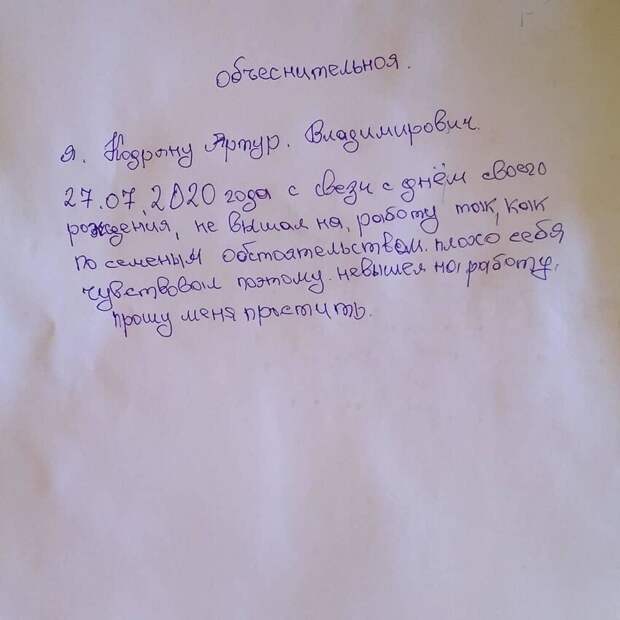 Объеснительноя.
Я. Кодрыну Артур. Владимирович.
27.07.2020 года с свези с днём своего
рождения, не вышал на, работу так, как
по семеным обстоятельствам. плохо себя
чувствовал поэтому. невышел на, работу,
прошу меня прьстить.